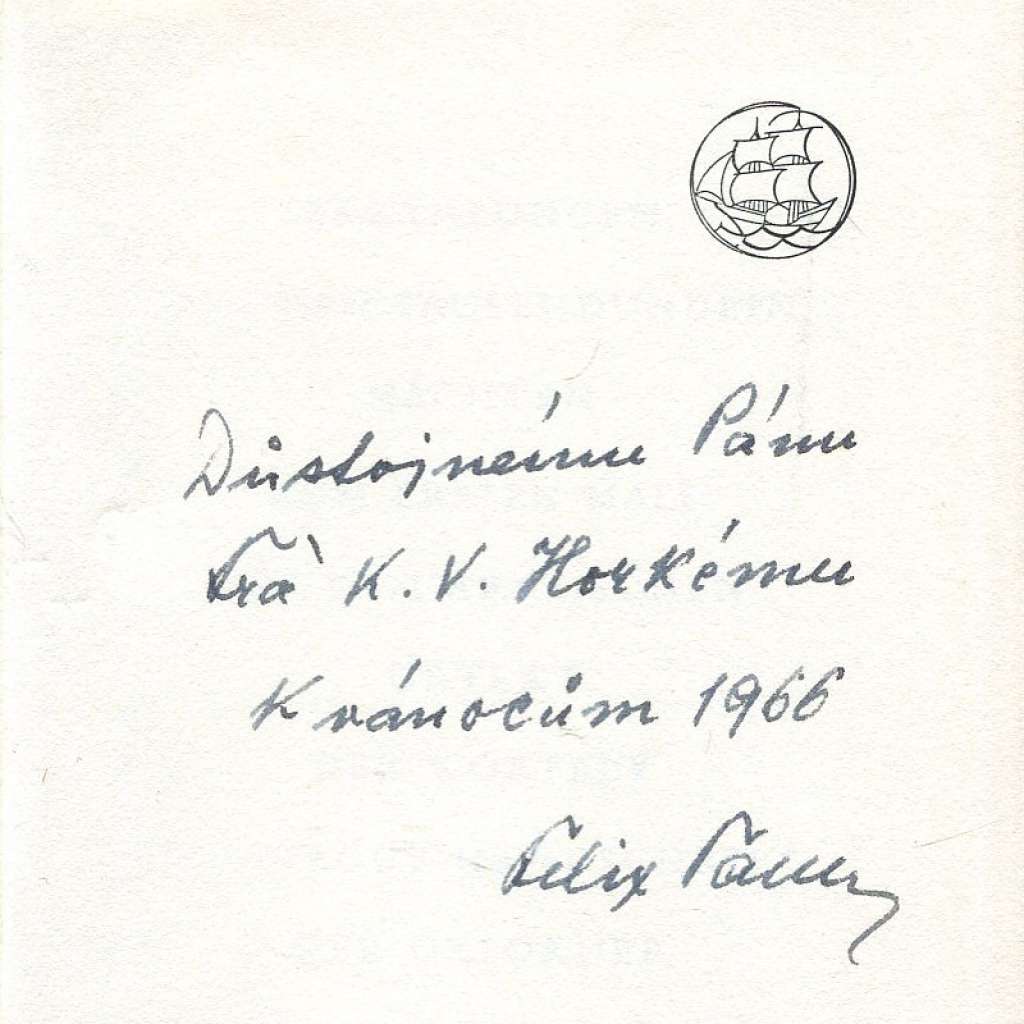 Důstojnému Pánu
Frà K. V. Horkému
K vánocům 1966
Felix Tauer